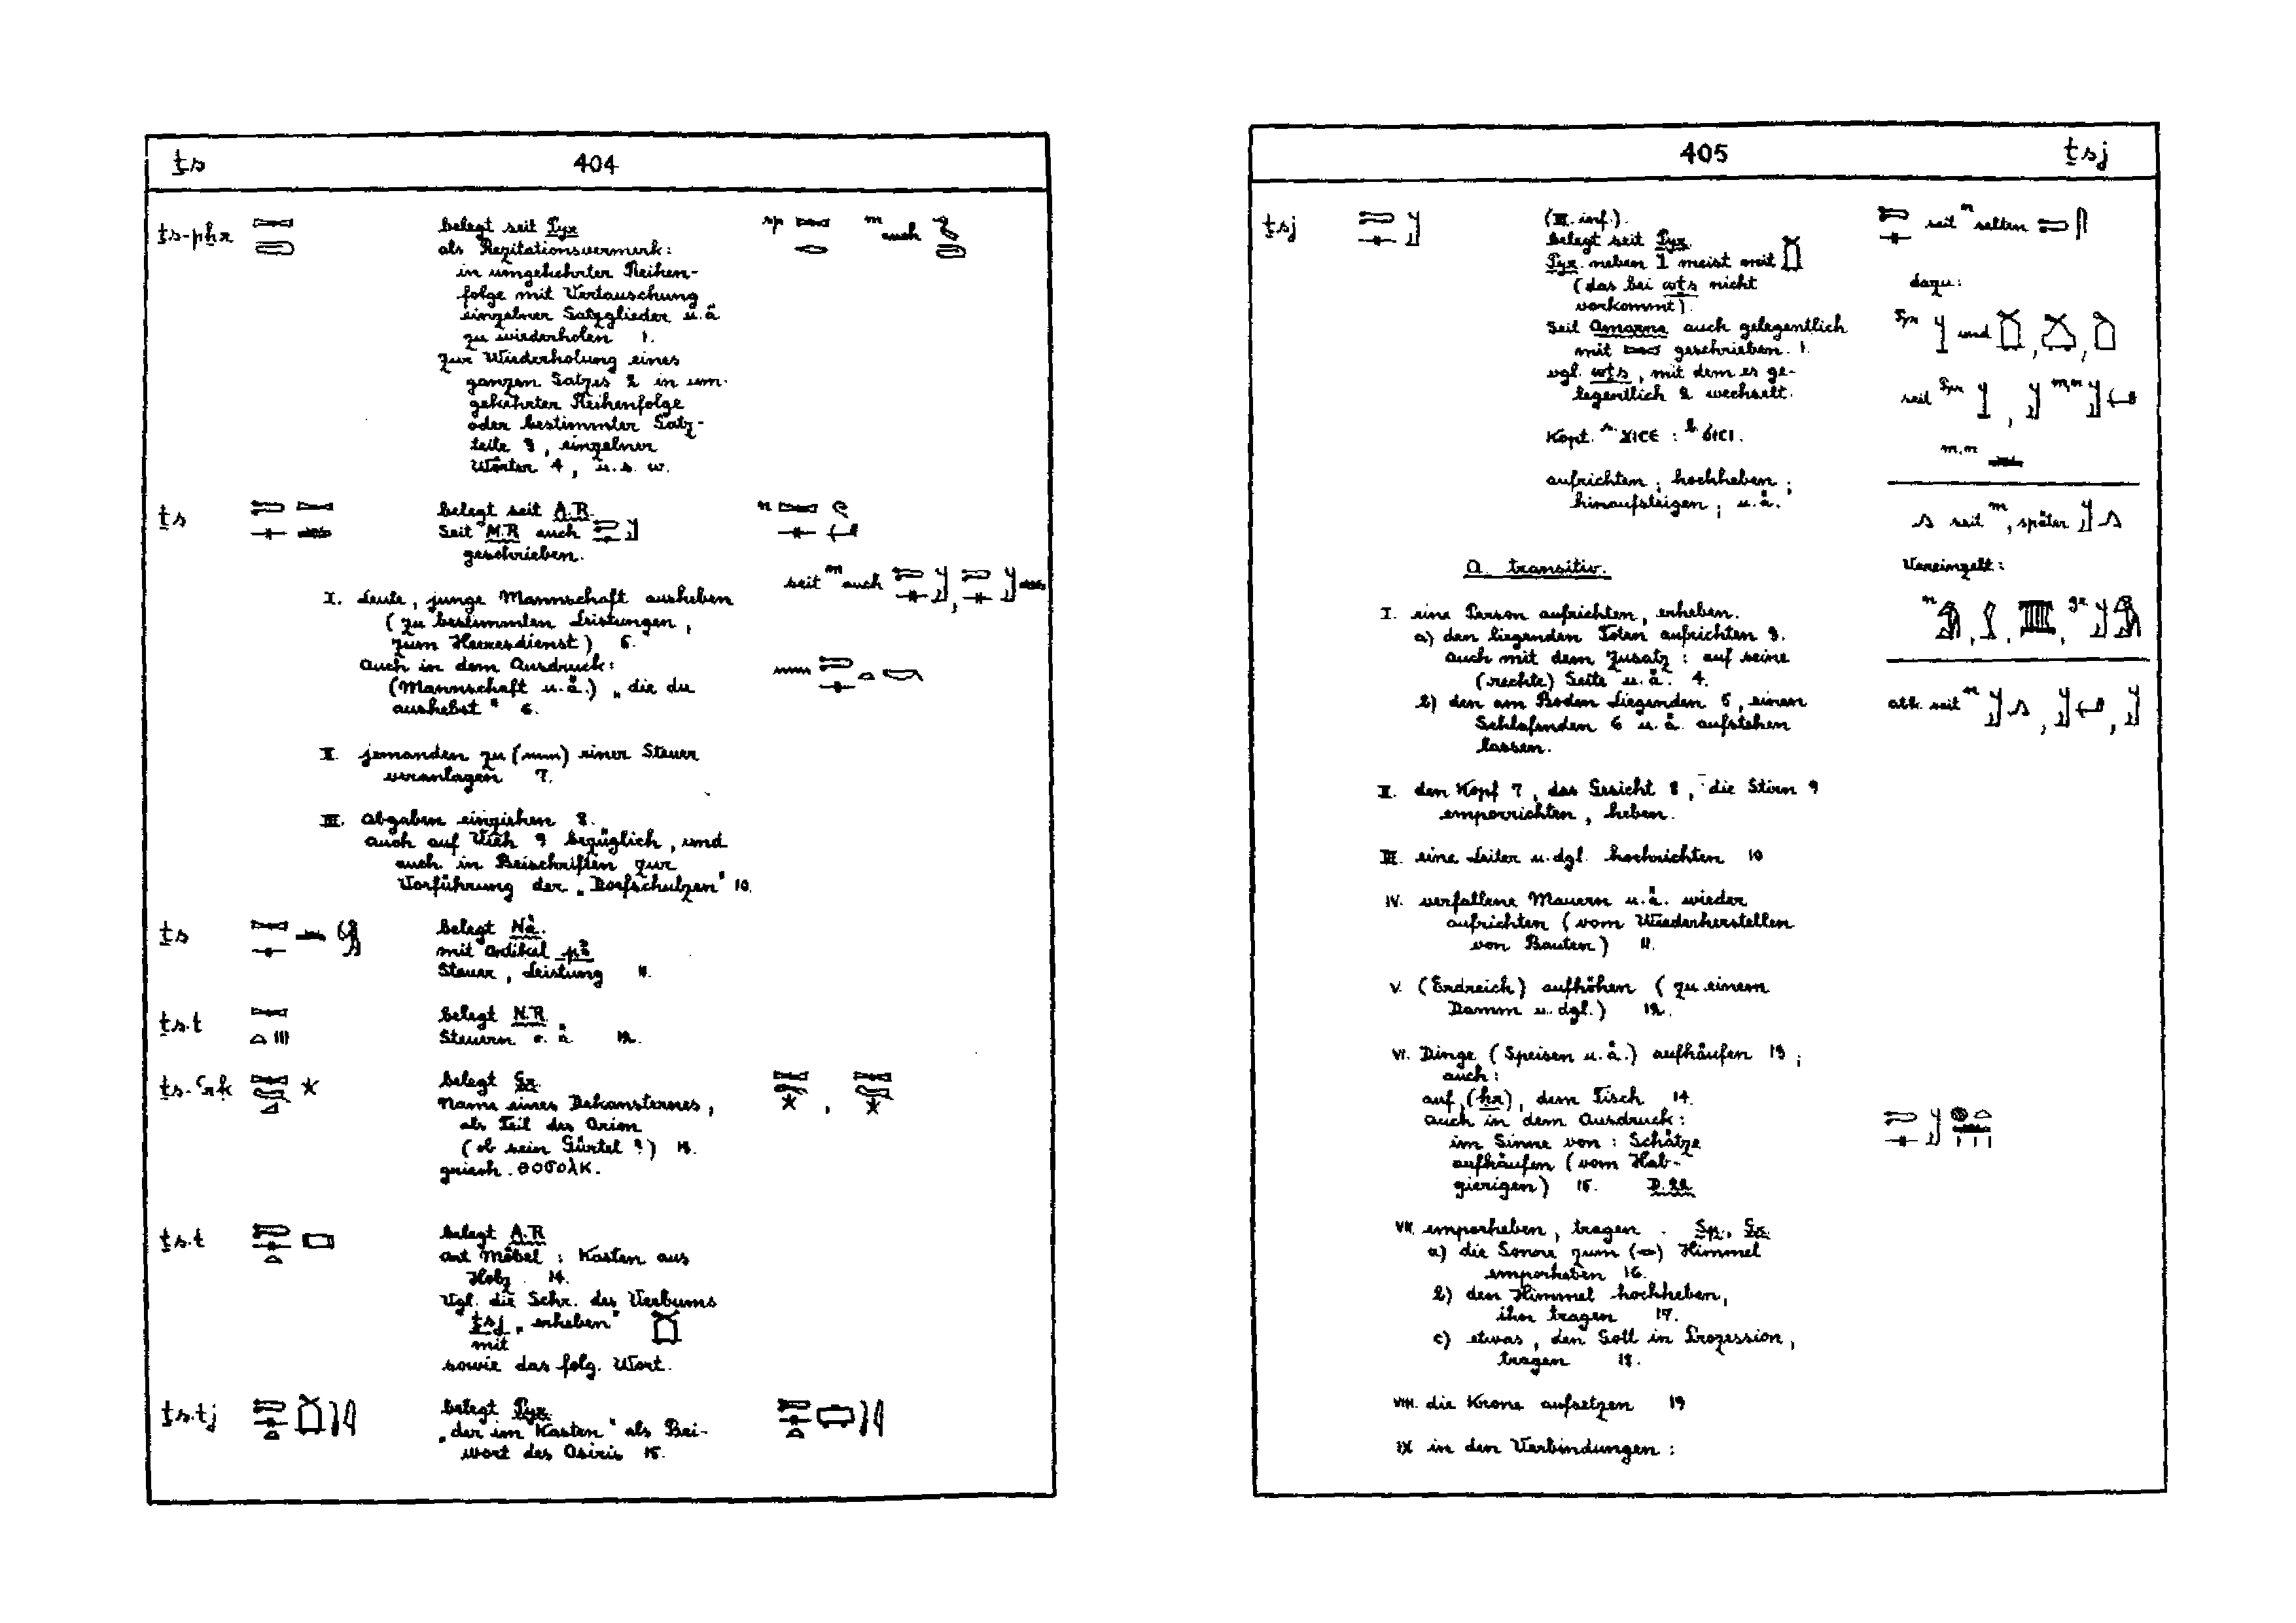 ṯs
404
ṯs-pẖr
belegt seit Pyr.
als Rezitationsvermerk:
in umgekehrter Reihen-
folge mit Vertauschung
einzelner Satzglieder u.ä.
zu wiederholen 1.
zur Wiederholung eines
ganzen Satzes 2 in um-
gekehrter Reihenfolge
oder bestimmter Satz-
teile 3, einzelner
Wörter 4, u.s.w.
sp
m auch
ṯs
belegt seit A.R.
Seit M.R auch
geschrieben.
n
seit m auch
I. Leute, junge Mannschaft ausheben
(zu bestimmten Leistungen,
zum Heeresdienst)
Auch in dem Ausdruck:
(Mannschaft u.ä.) „die du
aushebst" 6.
II. jemanden zu einer Steuer
veranlagen 7.
III. Abgaben einziehen 8.
auch auf Vieh 9 bezüglich, und
auch in Beischriften zur
Vorführung der „Dorfschulzen" 10.
ṯs
belegt Nä.
mit Artikel pꜣ
Steuer, Leistung 11.
ṯs.t
belegt N.R.
Steuern o.ä. 12.
ṯs-ꜥrḳ
belegt Gr.
Name eines Dekansternes,
als Teil des Orion
(ob sein Gürtel?) 13.
griech. θοσολκ.
ṯs.t
belegt A.R
Art Möbel: Kasten aus
Holz 14.
Vgl. die Schr. des Verbums
ṯsj „erheben"
mit
sowie das folg. Wort.
ṯs.tj
belegt Pyr.
„der im Kasten" als Bei-
wort des Osiris 15.
405
ṯsj
ṯsj
(III. inf.).
belegt seit Pyr.
Pyr. neben meist mit
(das bei wṯs nicht
vorkommt).
Seit Amarna auch gelegentlich
mit geschrieben. 1.
vgl. wṯs, mit dem es ge-
legentlich 2 wechselt.
Kopt. s. ϫⲓⲥⲉ : b. ϭⲓⲥⲓ.
aufrichten; hochheben;
hinaufsteigen; u.ä.
seit m selten
dazu:
Pyr und
seit Pyr
seit m, später
Vereinzelt:
n gr
abk. seit m
A. transitiv.
I. eine Person aufrichten, erheben.
a) den liegenden Toten aufrichten 3.
auch mit dem Zusatz: auf seine
(rechte) Seite u.ä. 4.
b) den am Boden Liegenden 5, einen
Schlafenden 6 u.ä. aufstehen
lassen.
II. den Kopf 7, das Gesicht 8, die Stirn 9
emporrichten, heben.
III. eine Leiter u.dgl. hochrichten 10
IV. verfallene Mauern u.ä. wieder
aufrichten (vom Wiederherstellen
von Bauten) 11.
V. (Erdreich) aufhöhen (zu einem
Damm u.dgl.) 12.
VI. Dinge (Speisen u.ä.) aufhäufen 13;
auch:
auf (ḥr), dem Tisch 14.
Auch in dem Ausdruck:
im Sinne von: Schätze
aufhäufen (vom Hab-
gierigen) 15. D.22
VII. emporheben, tragen. Sp., Gr.
a) die Sonne zum Himmel
emporheben 16.
b) den Himmel hochheben,
ihn tragen 17.
c) etwas, den Gott in Prozession,
tragen 18.
VIII. die Krone aufsetzen 19
IX in den Verbindungen: